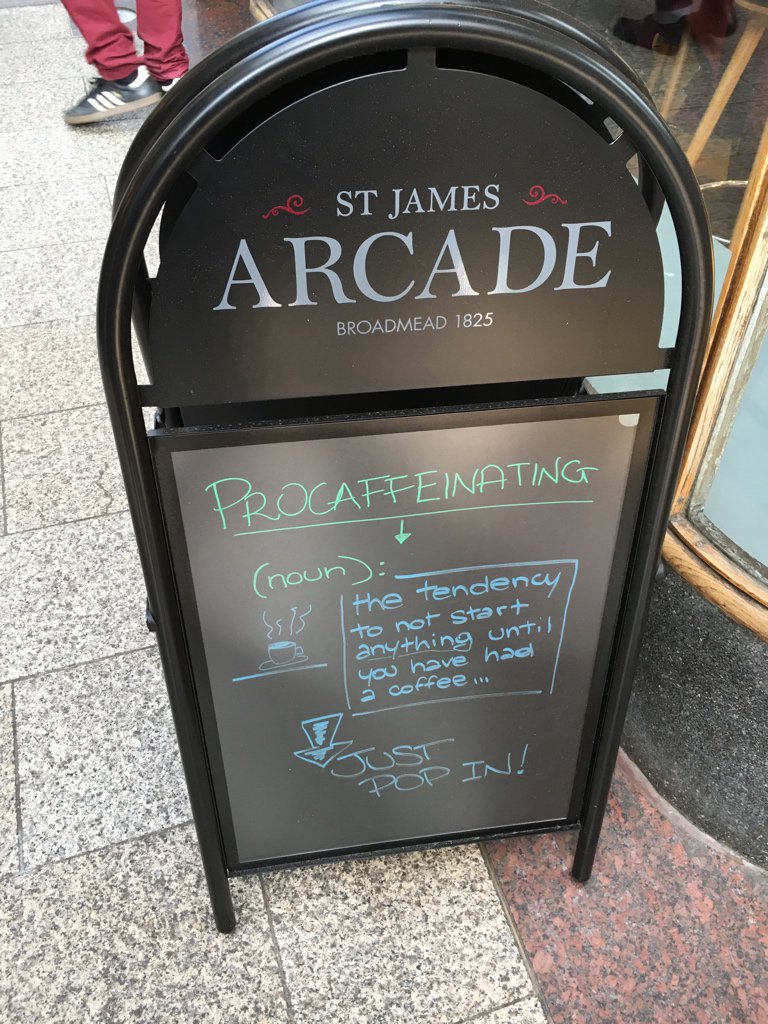 ST JAMES
ARCADE
BROADMEAD 1825
PROCAFFEINATING
(noun):
the tendency
to not start
anything until
you have had
a coffee...
JUST
POP IN!